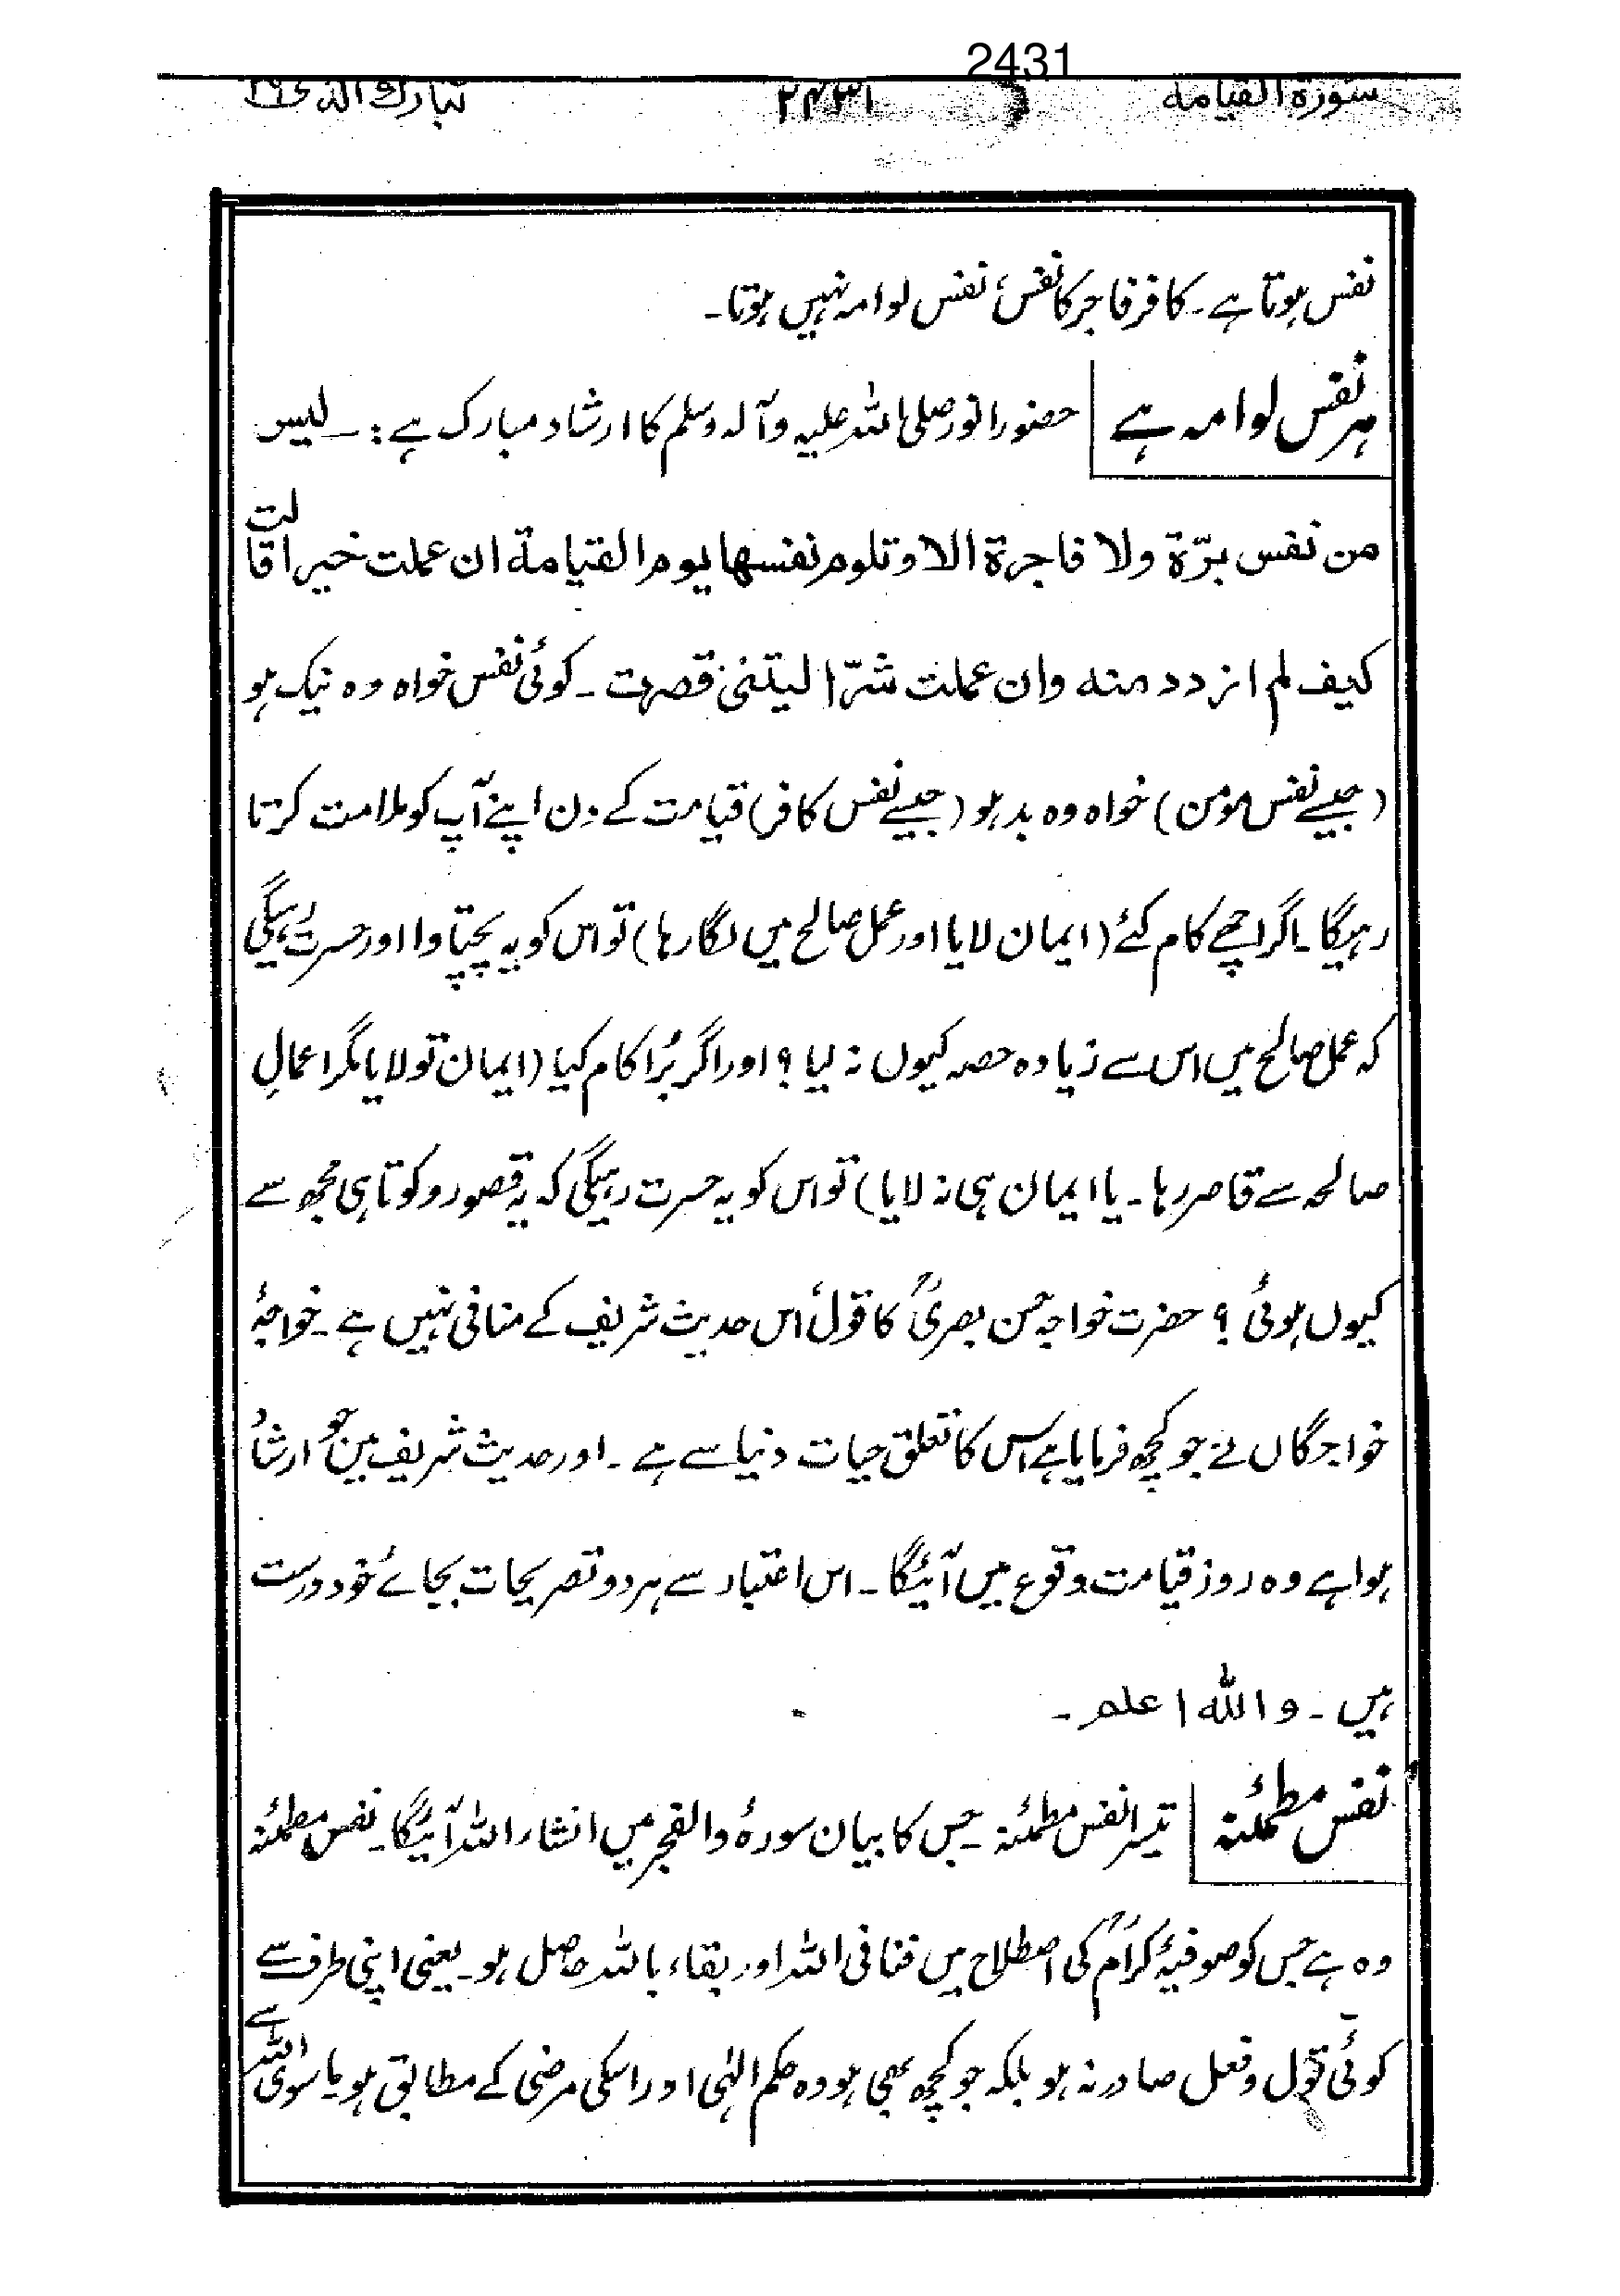 2431
سورة القيامة ۲۴۳۱ تبارك الذی ۲۹
نفس ہوتا ہے۔ کافر فاجر کا نفس، نفس لوامہ نہیں ہوتا۔
ہر نفس لوامہ ہے حضور انور صلی اللہ علیہ وآلہ وسلم کا ارشاد مبارک ہے:۔ ليس
من نفس برّة ولا فاجرة الا وتلوم نفسها يوم القيامة ان عملت خيرا قالت
كيف لم ازدد منه وان عملت شرّا ليتنی قصرت ۔ کوئی نفس خواہ وہ نیک ہو
(جیسے نفس مومن) خواہ وہ بد ہو (جیسے نفس کافر) قیامت کے دن اپنے آپ کو ملامت کرتا
رہیگا۔ اگر اچھے کام کئے (ایمان لایا اور عمل صالح میں لگا رہا) تو اس کو یہ پچتپاوا اور حسرت رہیگی
کہ عمل صالح میں اس سے زیادہ حصہ کیوں نہ لیا ؟ اور اگر بُرا کام کیا (ایمان تو لایا مگر اعمالِ
صالحہ سے قاصر رہا۔ یا ایمان ہی نہ لایا) تو اس کو یہ حسرت رہیگی کہ یہ قصور و کوتاہی مجھ سے
کیوں ہوئی ؟ حضرت خواجہ حسن بصریؒ کا قول اس حدیث شریف کے منافی نہیں ہے۔ خواجۂ
خواجگاں نے جو کچھ فرمایا ہے اس کا تعلق حیات دنیا سے ہے ۔ اور حدیث شریف میں جو ارشاد
ہوا ہے وہ روز قیامت وقوع میں آئیگا۔ اس اعتبار سے ہر دو تصریحات بجائے خود درست
ہیں ۔ واللہ اعلم ۔
نفس مطمئنہ تیسرا نفس مطمئنہ ۔ جس کا بیان سورۂ والفجر میں انشاء اللہ آئیگا۔ نفس مطمئنہ
وہ ہے جس کو صوفیۂ کرامؒ کی اصطلاح میں فنا فی اللہ اور بقاء باللہ حاصل ہو۔ یعنی اپنی طرف سے
کوئی قول وفعل صادر نہ ہو بلکہ جو کچھ بھی ہو وہ حکم الہٰی اور اسکی مرضی کے مطابق ہو ماسوی اللہ سے